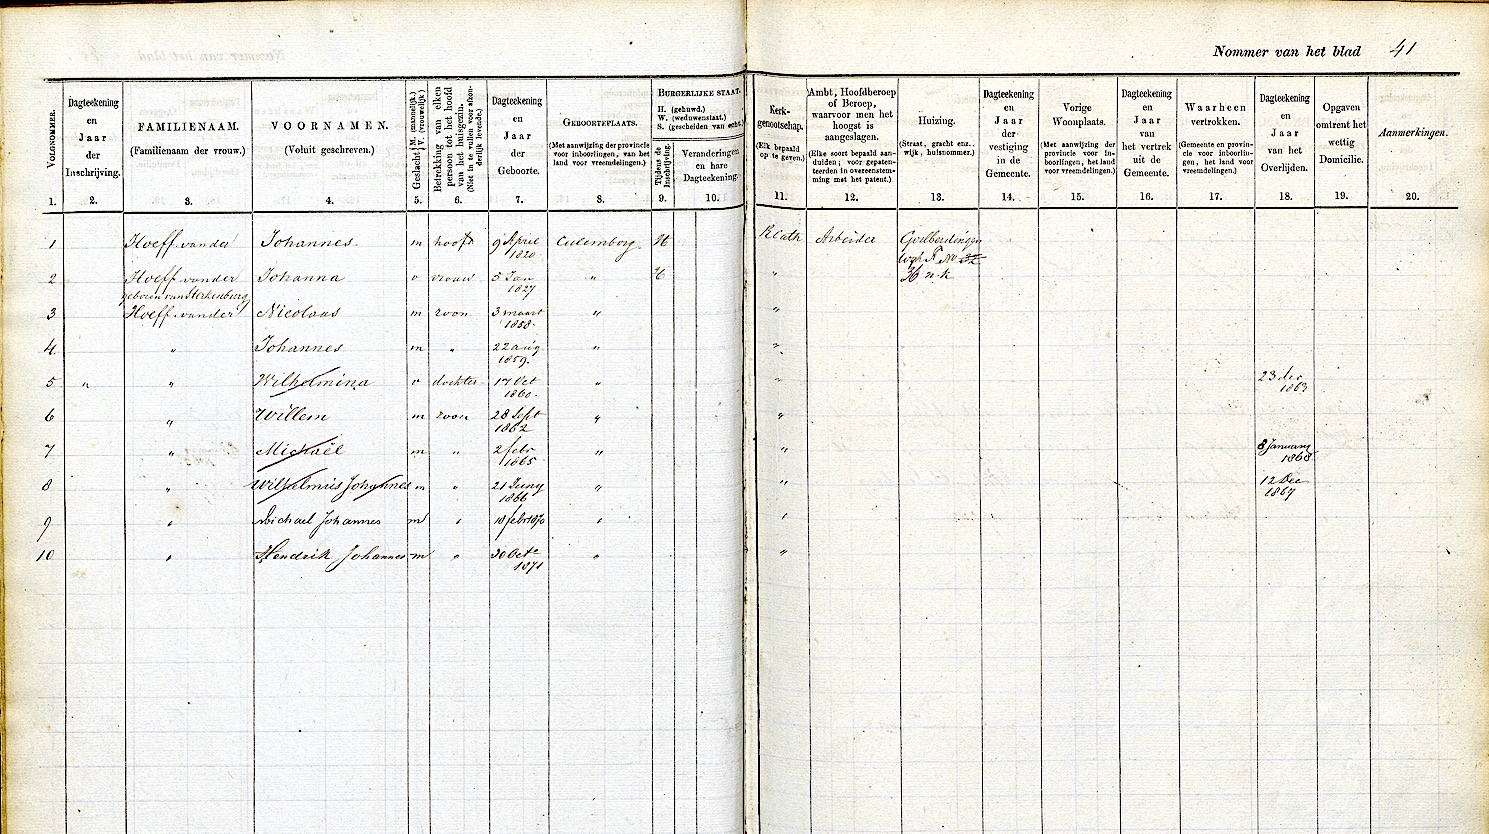 Nommer van het blad 41
VOLGNOMMER. 1.
Dagteekening en Jaar der Inschrijving. 2.
FAMILIENAAM. (Familienaam der vrouw.) 3.
VOORNAMEN. (Voluit geschreven.) 4.
Geslacht M. (mannelijk.) V. (vrouwelijk) 5.
Betrekking van elken persoon tot het hoofd van het huisgezin. (Niet in te vullen voor afzonderlijk levende.) 6.
Dagteekening en Jaar der Geboorte. 7.
GEBOORTEPLAATS. (Met aanwijzing der provincie voor inboorlingen, van het land voor vreemdelingen.) 8.
BURGERLIJKE STAAT.
H. (gehuwd.)
W. (weduwenstaat.)
S. (gescheiden van echt.)
Tijdens de Inschrijving. 9.
Veranderingen en hare Dagteekening. 10.
Kerkgenootschap. (Elk bepaald op te geven.) 11.
Ambt, Hoofdberoep of Beroep, waarvoor men het hoogst is aangeslagen. (Elke soort bepaald aanduiden; voor gepatenteerden in overeenstemming met het patent.) 12.
Huizing. (Straat, gracht enz. wijk, huisnommer.) 13.
Dagteekening en Jaar der vestiging in de Gemeente. 14.
Vorige Woonplaats. (Met aanwijzing der provincie voor inboorlingen, het land voor vreemdelingen.) 15.
Dagteekening en Jaar van het vertrek uit de Gemeente. 16.
Waarheen vertrokken. (Gemeente en provincie voor inboorlingen, het land voor vreemdelingen.) 17.
Dagteekening en Jaar van het Overlijden. 18.
Opgaven omtrent het wettig Domicilie. 19.
Aanmerkingen. 20.
1 Hoeff vander Johannes m hoofd 9 April 1820 Culemborg H R Cath Arbeider Goilberdingen
2 Hoeff vander Johanna v vrouw 5 Jan 1827 " H "
geboren van Sterkenburg
3 Hoeff vander Nicolaas m zoon 3 maart 1858 " "
4 " Johannes m " 22 aug 1859 " "
5 " " Wilhelmina v dochter 17 Oct 1860 " " 23 dec 1863
6 " Willem m zoon 28 Sept 1862 " "
7 " Michaël m " 2 febr 1865 " " 8 January 1868
8 " Wilhelmus Johannes m " 21 Juny 1866 " " 12 Dec 1867
9 " Michael Johannes m " 10 febr 1870 " "
10 " Hendrik Johannes m " 30 Oct 1871 " "